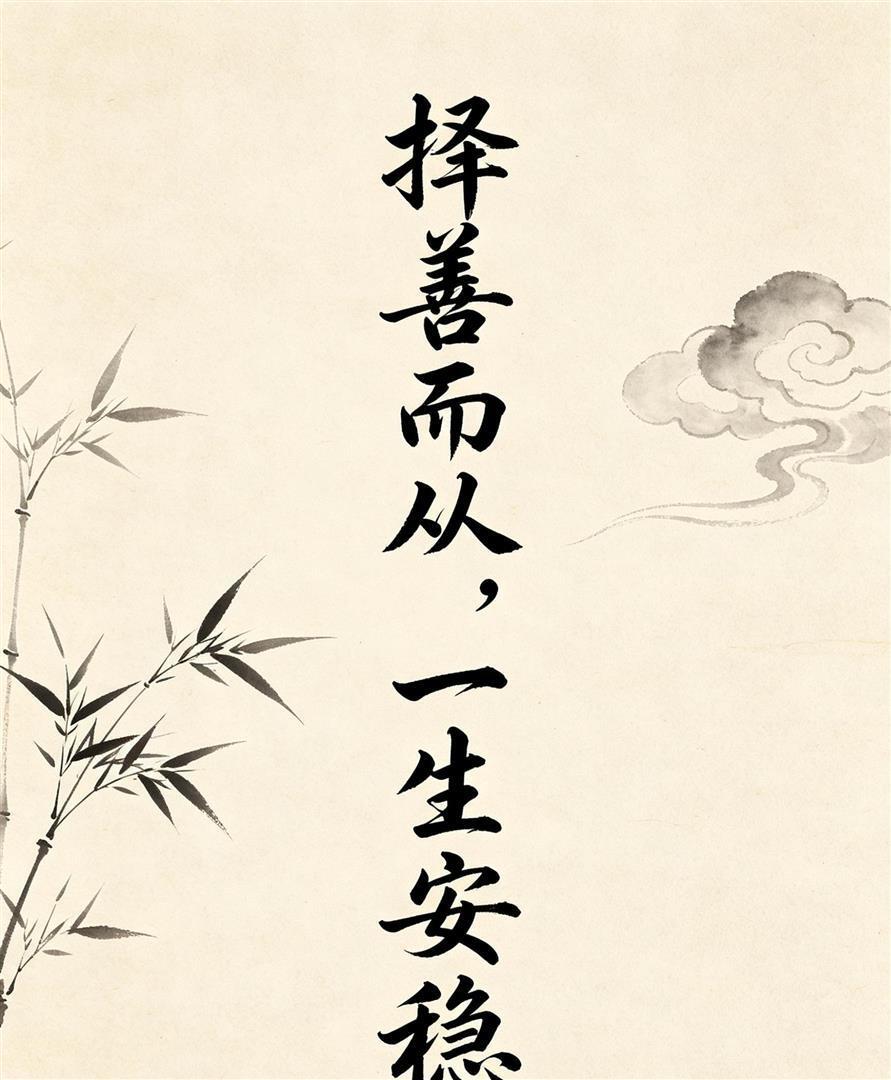 择善而从，一生安稳